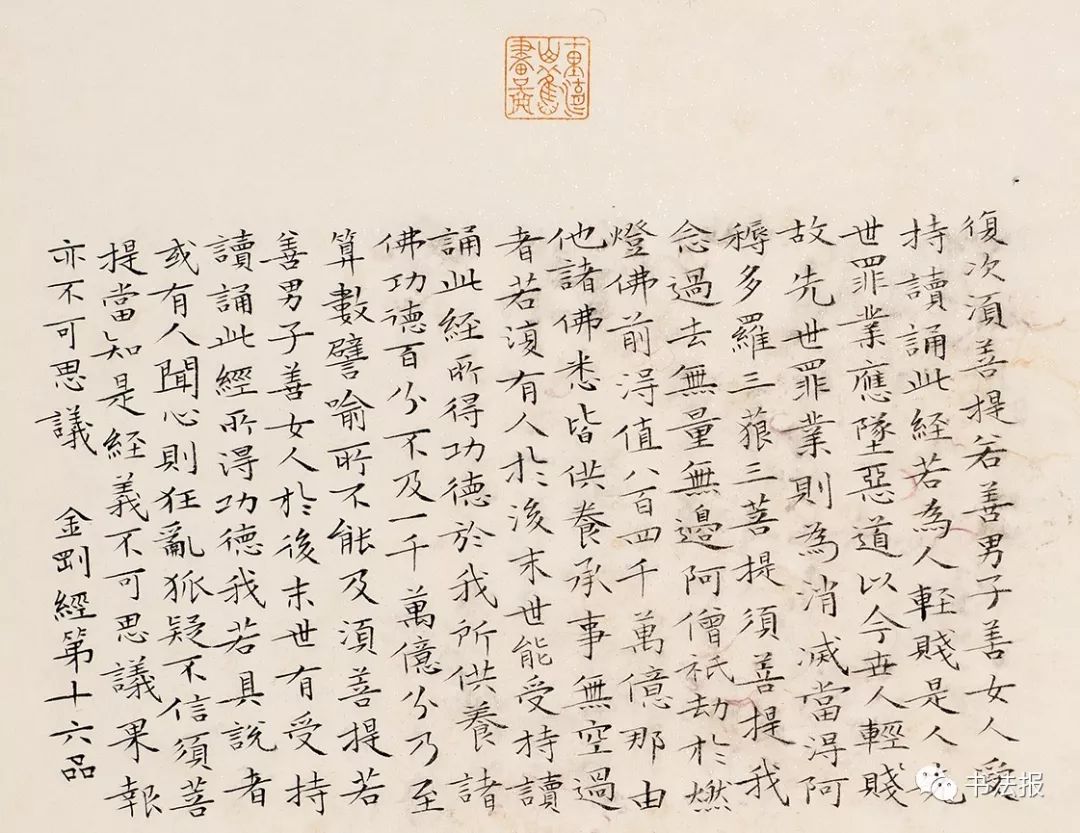 復次湏菩提若善男子善女人受
持讀誦此経若為人輕賤是人先
世罪業應墜惡道以今世人輕賤
故先世罪業則為消滅當淂阿
耨多羅三藐三菩提須菩提我
念過去無量無邊阿僧祇劫於燃
燈佛前淂值八百四千萬億那由
他諸佛悉皆供養承事無空過
者若復有人於後末世能受持讀
誦此経所得功德於我所供養諸
佛功德百分不及一千萬億分乃至
算數譬喻所不能及湏菩提若
善男子善女人於後末世有受持
讀誦此經所淂功德我若具說者
或有人聞心則狂亂狐疑不信須菩
提當知是経義不可思議果報
亦不可思議 金剛經第十六品
书法报